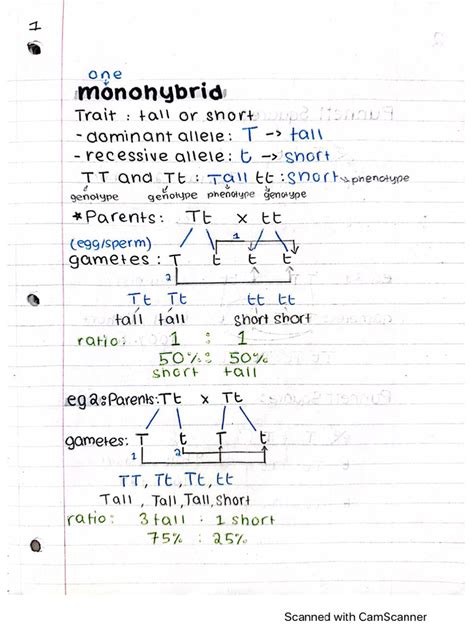 1
one
monohybrid
Trait : tall or short
- dominant allele: T -> tall
- recessive allele: t -> short
TT and Tt : Tall tt : short phenotype
genotype genotype phenotype genotype
*Parents: Tt x tt
(egg/sperm) 1
gametes : T t t t
2
Tt Tt tt tt
tall tall short short
ratio: 1 : 1
50% : 50%
short tall
eg2: Parents: Tt x Tt
gametes: T t T t
1 2
TT, Tt, Tt, tt
Tall, Tall, Tall, Short
ratio: 3 tall : 1 short
75% : 25%
Scanned with CamScanner